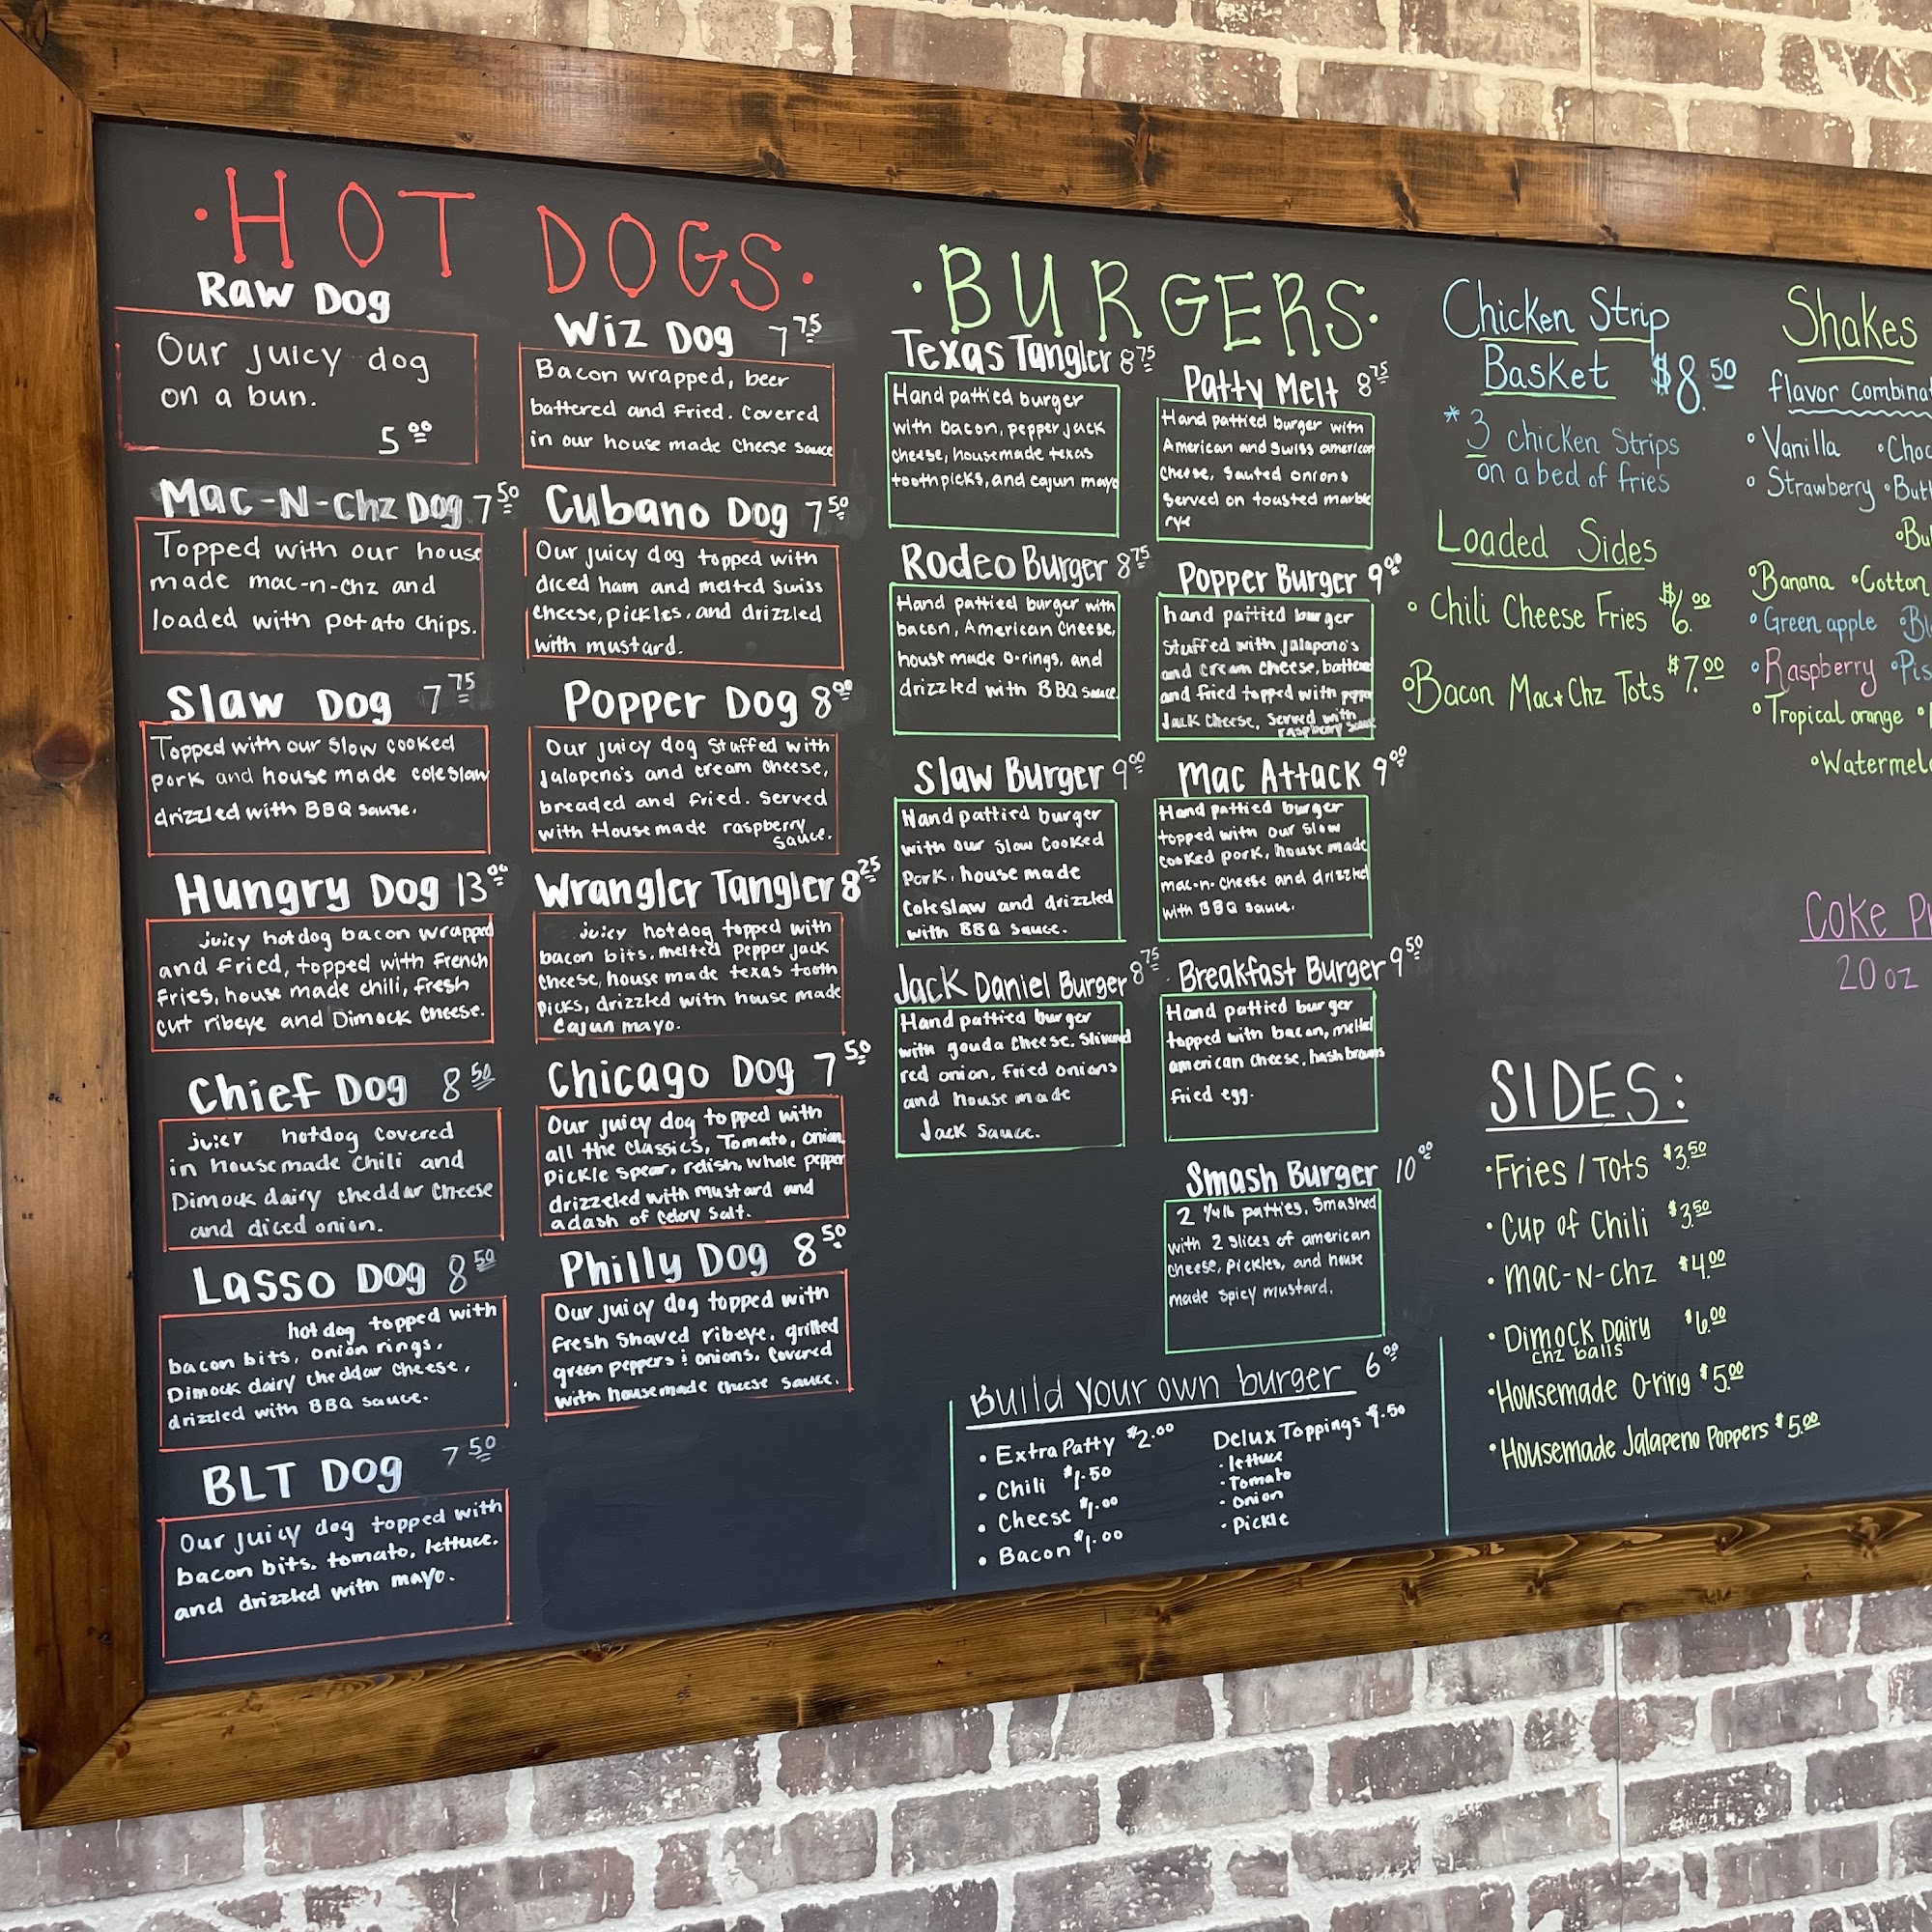 HOT DOGS
Raw Dog
Our juicy dog
on a bun.
5.00
Mac-N-Chz Dog 7.50
Topped with our house
made mac-n-chz and
loaded with potato chips.
Slaw Dog 7.75
Topped with our slow cooked
pork and house made coleslaw
drizzled with BBQ sause.
Hungry Dog 13.00
juicy hotdog bacon wrapped
and fried, topped with French
fries, house made chili, fresh
cut ribeye and Dimock cheese.
Chief Dog 8.50
juicy hotdog covered
in housemade chili and
Dimock dairy cheddar cheese
and diced onion.
Lasso Dog 8.50
hot dog topped with
bacon bits, onion rings,
Dimock dairy cheddar cheese,
drizzled with BBQ sauce.
BLT Dog 7.50
Our juicy dog topped with
bacon bits, tomato, lettuce.
and drizzled with mayo.
Wiz Dog 7.75
Bacon wrapped, beer
battered and fried. Covered
in our house made cheese sauce
Cubano Dog 7.50
Our juicy dog topped with
diced ham and melted swiss
cheese, pickles, and drizzled
with mustard.
Popper Dog 8.00
Our juicy dog stuffed with
jalapeno's and cream cheese,
breaded and fried. served
with House made raspberry
sauce.
Wrangler Tangler 8.25
juicy hotdog topped with
bacon bits, melted pepper jack
cheese, house made texas tooth
picks, drizzled with house made
cajun mayo.
Chicago Dog 7.50
Our juicy dog topped with
all the classics, Tomato, onion
pickle spear, relish, whole pepper
drizzeled with mustard and
a dash of celory salt.
Philly Dog 8.50
Our juicy dog topped with
fresh shaved ribeye, grilled
green peppers & onions. Covered
with housemade cheese sauce.
BURGERS
Texas Tangler 8.75
Hand pattied burger
with bacon, pepper jack
cheese, housemade texas
toothpicks, and cajun mayo
Rodeo Burger 8.75
Hand pattied burger with
bacon, American cheese,
house made o-rings, and
drizzled with BBQ sauce.
Slaw Burger 9.00
Hand pattied burger
with our slow cooked
pork, house made
coleslaw and drizzled
with BBQ sauce.
Jack Daniel Burger 8.75
Hand pattied burger
with gouda cheese, slivered
red onion, fried onions
and house made
Jack sauce.
Patty Melt 8.75
Hand pattied burger with
American and swiss american
cheese, sauted onions
served on toasted marble
rye
Popper Burger 9.00
hand pattied burger
stuffed with jalapono's
and cream cheese, battered
and fried topped with pepper
jack cheese, served with
raspberry sauce
Mac Attack 9.00
Hand pattied burger
topped with our slow
cooked pork, house made
mac-n-cheese and drizzled
with BBQ sauce.
Breakfast Burger 9.50
Hand pattied burger
topped with bacon, melted
american cheese, hash browns
fried egg.
Smash Burger 10.00
2 1/4 lb patties, smashed
with 2 slices of american
cheese, pickles, and house
made spicy mustard.
Build your own burger 6.00
• Extra Patty $2.00
• Chili $1.50
• Cheese $1.00
• Bacon $1.00
Delux Toppings $.50
• lettuce
• Tomato
• Onion
• Pickle
Chicken Strip
Basket $8.50
* 3 chicken strips
on a bed of fries
Loaded Sides
• Chili Cheese Fries $6.00
• Bacon Mac & Chz Tots $7.00
SIDES:
• Fries / Tots $3.50
• Cup of Chili $3.50
• mac-N-chz $4.00
• Dimock Dairy $6.00
chz balls
• Housemade O-ring $5.00
• Housemade Jalapeno Poppers $5.00
Shakes
flavor
• Vanilla
• Strawberry
• Banana • Cotton
• Green apple
• Raspberry
• Tropical orange
Coke
20 oz